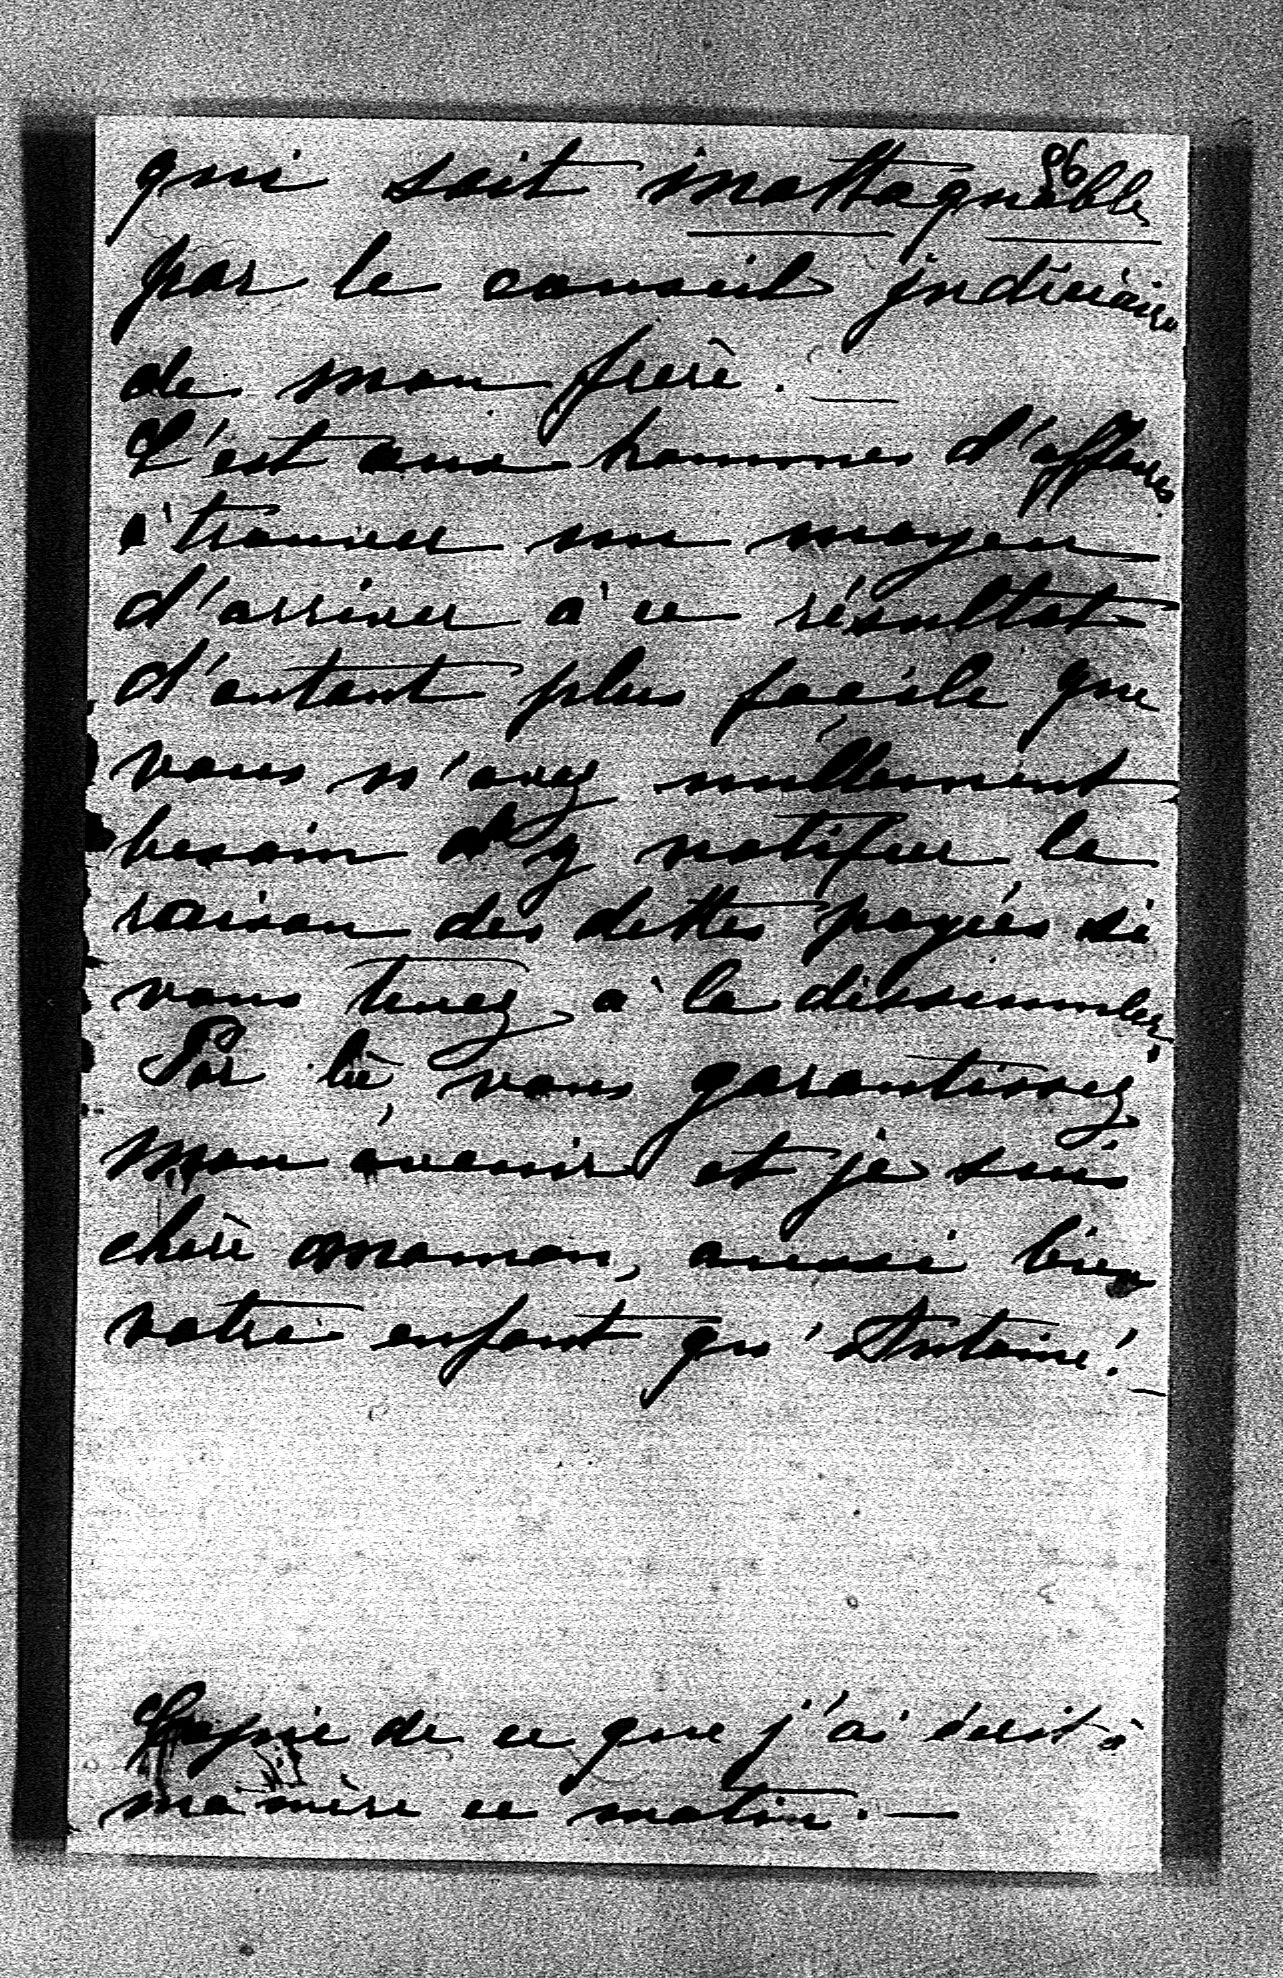 96
qui soit inattaquable
par le conseil judiciaire
de mon frère.
C'est aux hommes d'affaires
à trouver un moyen
d'arriver à ce résultat
d'autant plus facile que
vous n'avez nullement
besoin d'y notifier la
raison des dettes payées si
vous tenez à la dissimuler.
Par là vous garantissez
mon avenir et je suis
chère maman, aussi bien
votre enfant qu'Antoine! —
Copie de ce que j'ai écrit à
ma mère ce matin. —